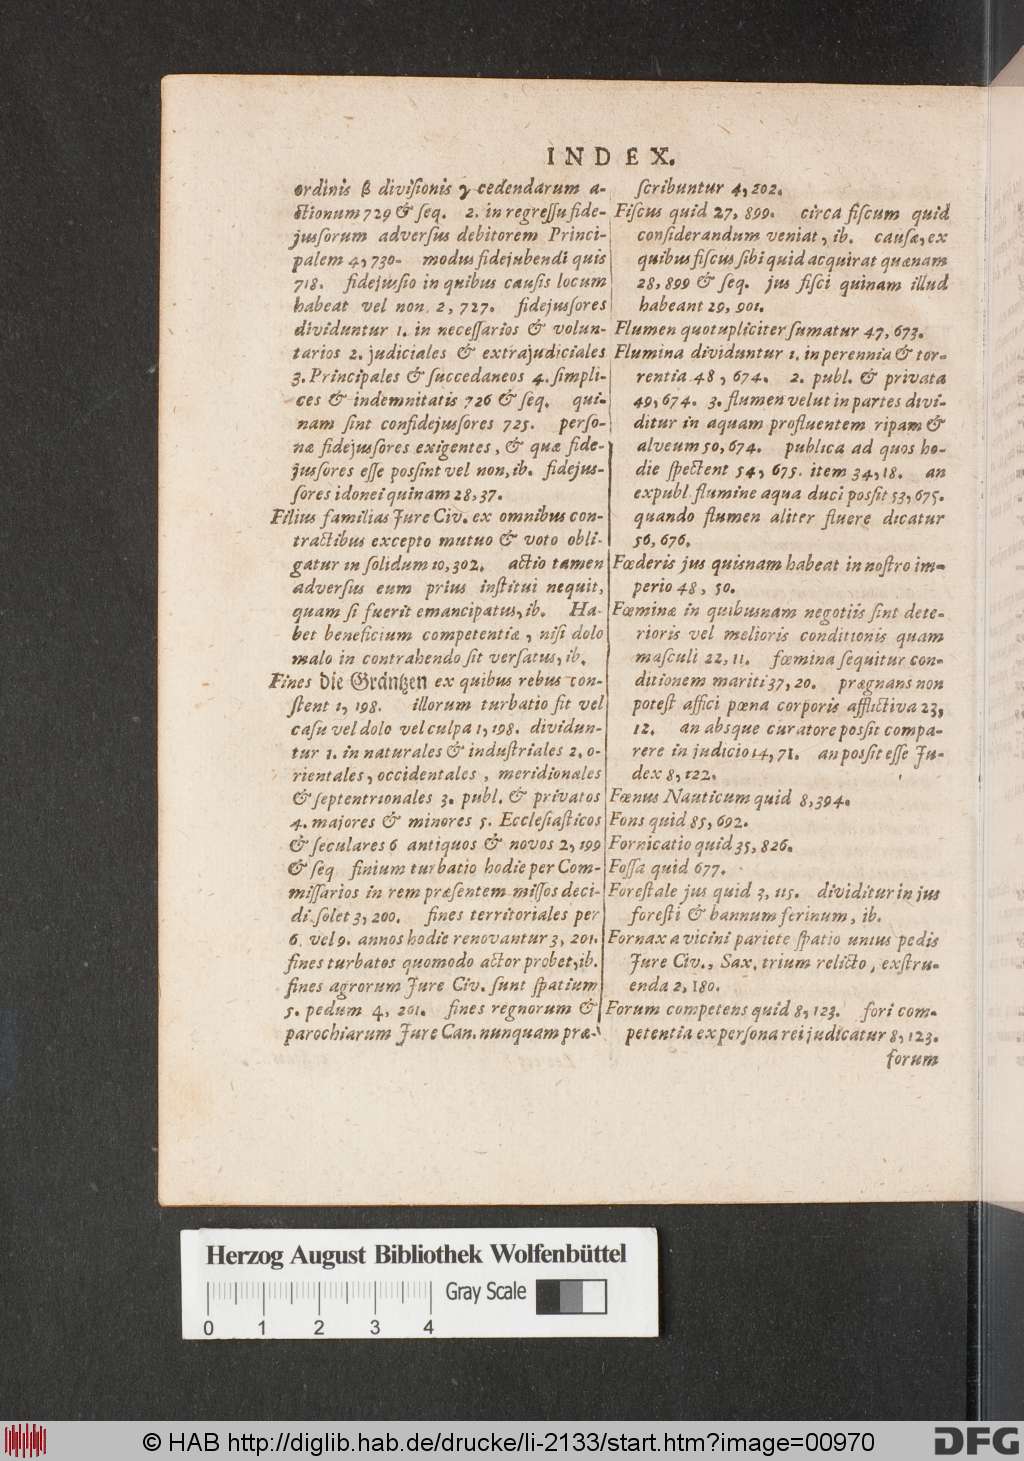 INDEX.
ordinis β divisionis γ cedendarum a-
ctionum 729 & seq. 2. in regressu fide-
jussorum adversus debitorem Princi-
palem 4, 730- modus fidejubendi quis
718. fidejussio in quibus causis locum
habeat vel non 2, 727. fidejussores
dividuntur 1. in necessarios & volun-
tarios 2. judiciales & extrajudiciales
3. Principales & succedaneos 4. simpli-
ces & indemnitatis 726 & seq. qui-
nam sint confidejussores 725. perso-
næ fidejussores exigentes, & quæ fide-
jussores esse possint vel non, ib. fidejus-
sores idonei quinam 28, 37.
Filius familias Jure Civ. ex omnibus con-
tractibus excepto mutuo & voto obli-
gatur in solidum 10, 302. actio tamen
adversus eum prius institui nequit,
quam si fuerit emancipatus, ib. Ha-
bet beneficium competentiæ, nisi dolo
malo in contrahendo sit versatus, ib.
Fines die Gräntzen ex quibus rebus con-
stent 1, 198. illorum turbatio fit vel
casu vel dolo vel culpa 1, 198. dividun-
tur 1. in naturales & industriales 2. o-
rientales, occidentales, meridionales
& septentrionales 3. publ. & privatos
4. majores & minores 5. Ecclesiasticos
& seculares 6 antiquos & novos 2, 199
& seq finium turbatio hodie per Com-
missarios in rem præsentem missos deci-
di solet 3, 200. fines territoriales per
6. vel 9. annos hodie renovantur 3, 201.
fines turbatos quomodo actor probet, ib.
fines agrorum Jure Civ. sunt spatium
5. pedum 4, 201. fines regnorum &
parochiarum Jure Can. nunquam præ-
scribuntur 4, 202.
Fiscus quid 27, 899. circa fiscum quid
considerandum veniat, ib. causæ, ex
quibus fiscus sibi quid acquirat quænam
28, 899 & seq. jus fisci quinam illud
habeant 29, 901.
Flumen quotupliciter sumatur 47, 673.
Flumina dividuntur 1. in perennia & tor-
rentia 48, 674. 2. publ. & privata
49, 674. 3. flumen velut in partes divi-
ditur in aquam profluentem ripam &
alveum 50, 674. publica ad quos ho-
die spectent 54, 675. item 34, 18. an
ex publ. flumine aqua duci possit 53, 675.
quando flumen aliter fluere dicatur
56, 676.
Fœderis jus quisnam habeat in nostro im-
perio 48, 50.
Fœminæ in quibusnam negotiis sint dete-
rioris vel melioris conditionis quam
masculi 22, 11. fœmina sequitur con-
ditionem mariti 37, 20. prægnans non
potest affici pœna corporis afflictiva 23,
12. an absque curatore possit compa-
rere in judicio 14, 71. an possit esse Ju-
dex 8, 122.
Fœnus Nauticum quid 8, 394.
Fons quid 85, 692.
Fornicatio quid 35, 826.
Fossa quid 677.
Forestale jus quid 3, 115. dividitur in jus
foresti & bannum ferinum, ib.
Fornax a vicini pariete spatio unius pedis
Jure Civ., Sax. trium relicto, exstru-
enda 2, 180.
Forum competens quid 8, 123. fori com-
petentia ex persona rei judicatur 8, 123.
forum
Herzog August Bibliothek Wolfenbüttel
Gray Scale
0 1 2 3 4
© HAB http://diglib.hab.de/drucke/li-2133/start.htm?image=00970
DFG